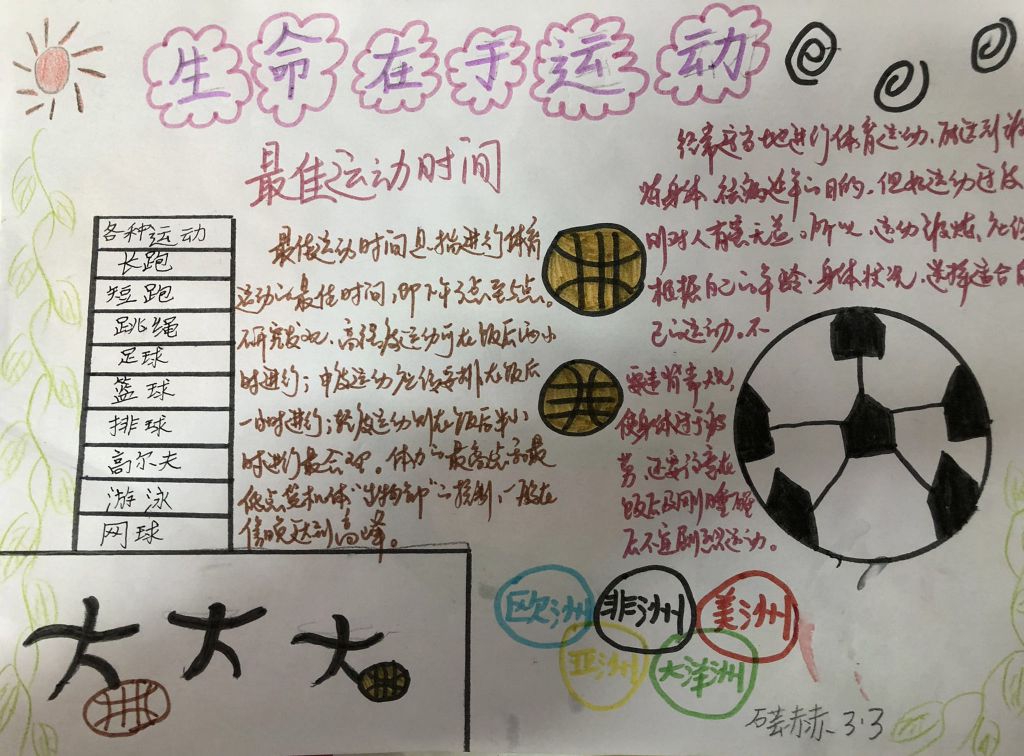 生命在于运动
最佳运动时间
各种运动
长跑
短跑
跳绳
足球
篮球
排球
高尔夫
游泳
网球
最佳运动时间是指进行体育
运动的最佳时间,即下午3点至5点。
研究发现,高强度运动可在饭后两小
时进行;中度运动应该安排在饭后
一小时进行;轻度运动则在饭后半小
时进行最合理。体力的最高点和最
低点受机体"生物钟"的控制,一般在
傍晚达到高峰。
经常适当地进行体育运动,能达到
身体、延年的目的。但是运动过度
则对人有害无益。所以,运动锻炼,应
根据自己的年龄、身体状况,选择适合
己的运动。不
要违背常规,
使身体过于疲
劳,还要注意在
饭后及刚睡醒
后不宜剧烈运动。
欧洲
非洲
美洲
亚洲
大洋洲
赫赫 3.3